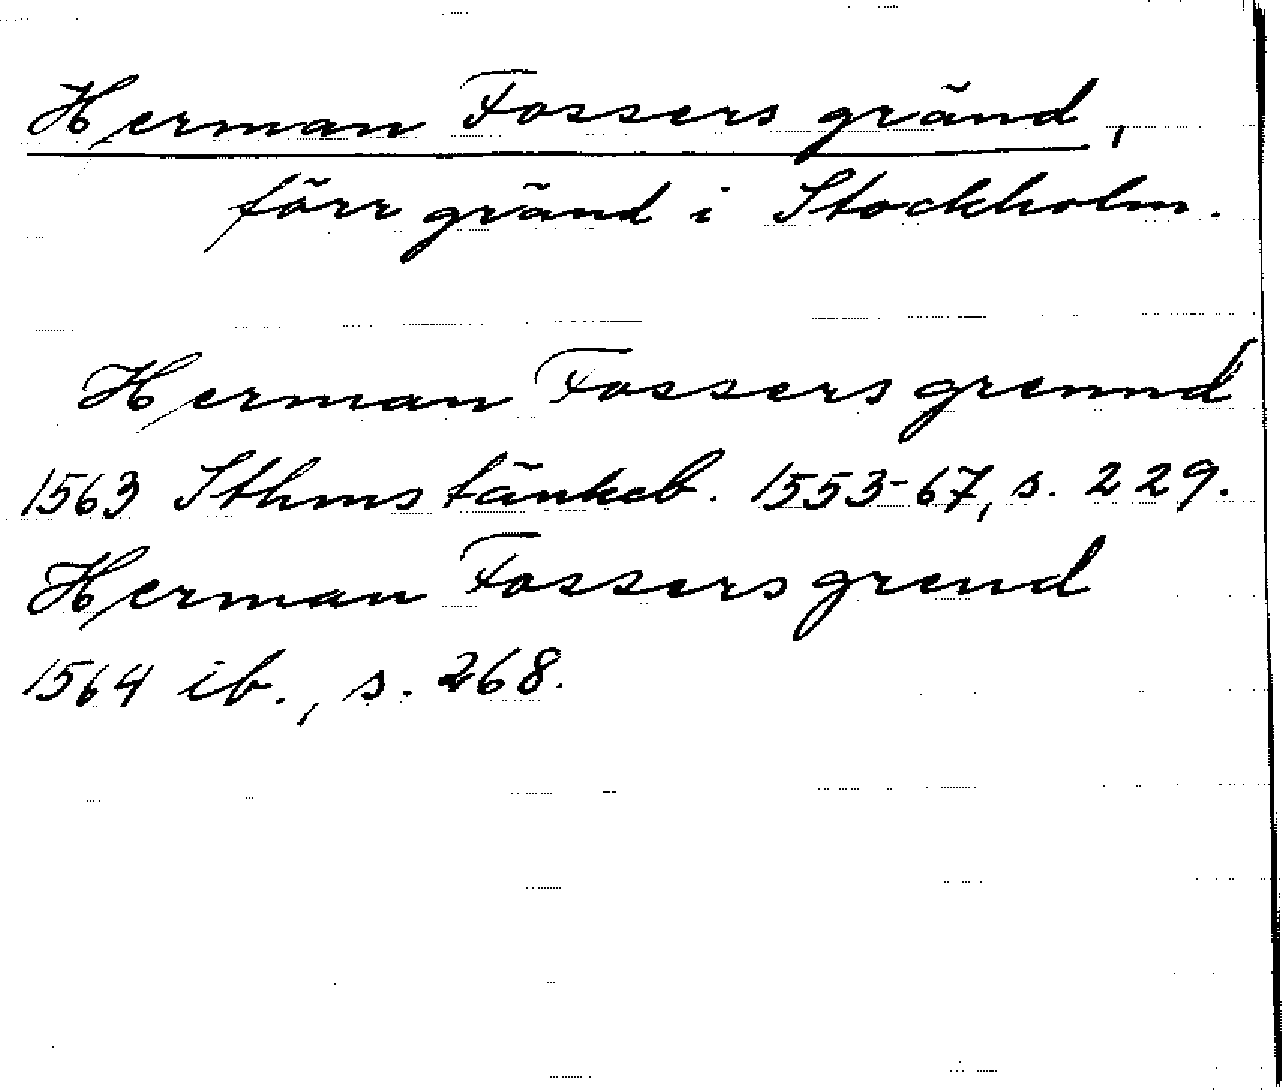 Herman Fossers gränd,
förr gränd i Stockholm.
Herman Fossers grennd
1563 Sthms tänkeb. 1553-67, s. 229.
Herman Fossers grend
1564 ib., s. 268.